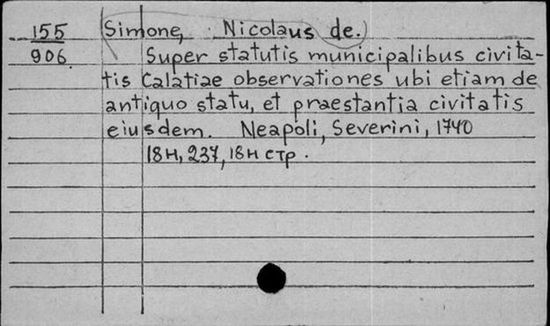 155 Simone, Nicolaus de.
906. Super statutis municipalibus civita-
tis Calatiae observationes ubi etiam de
antiquo statu, et praestantia civitatis
eiusdem. Neapoli, Severini, 1740
18н, 237, 18н стр.